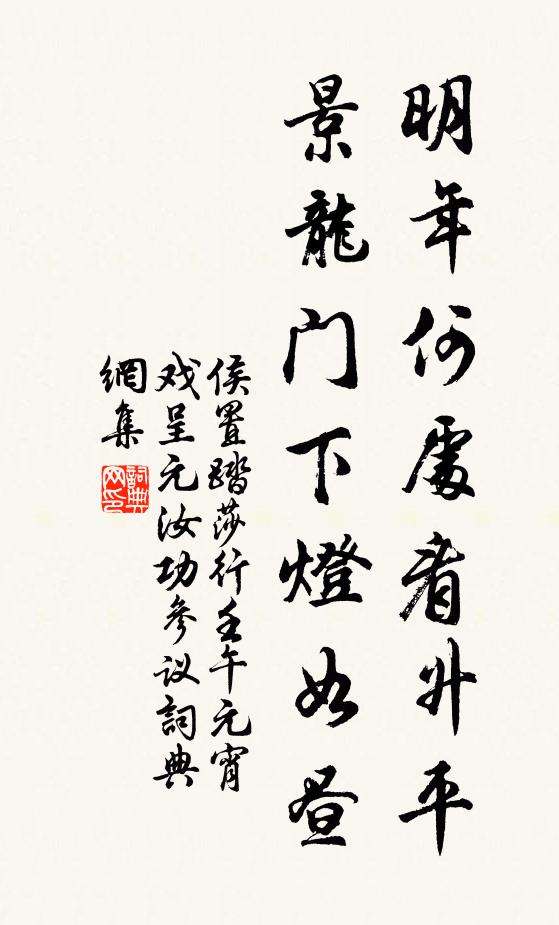 明年何處看升平
景龍门下燈如晝
侯置踏莎行壬午元宵
戏呈元汝功參议詞典
網集
詞典
网印